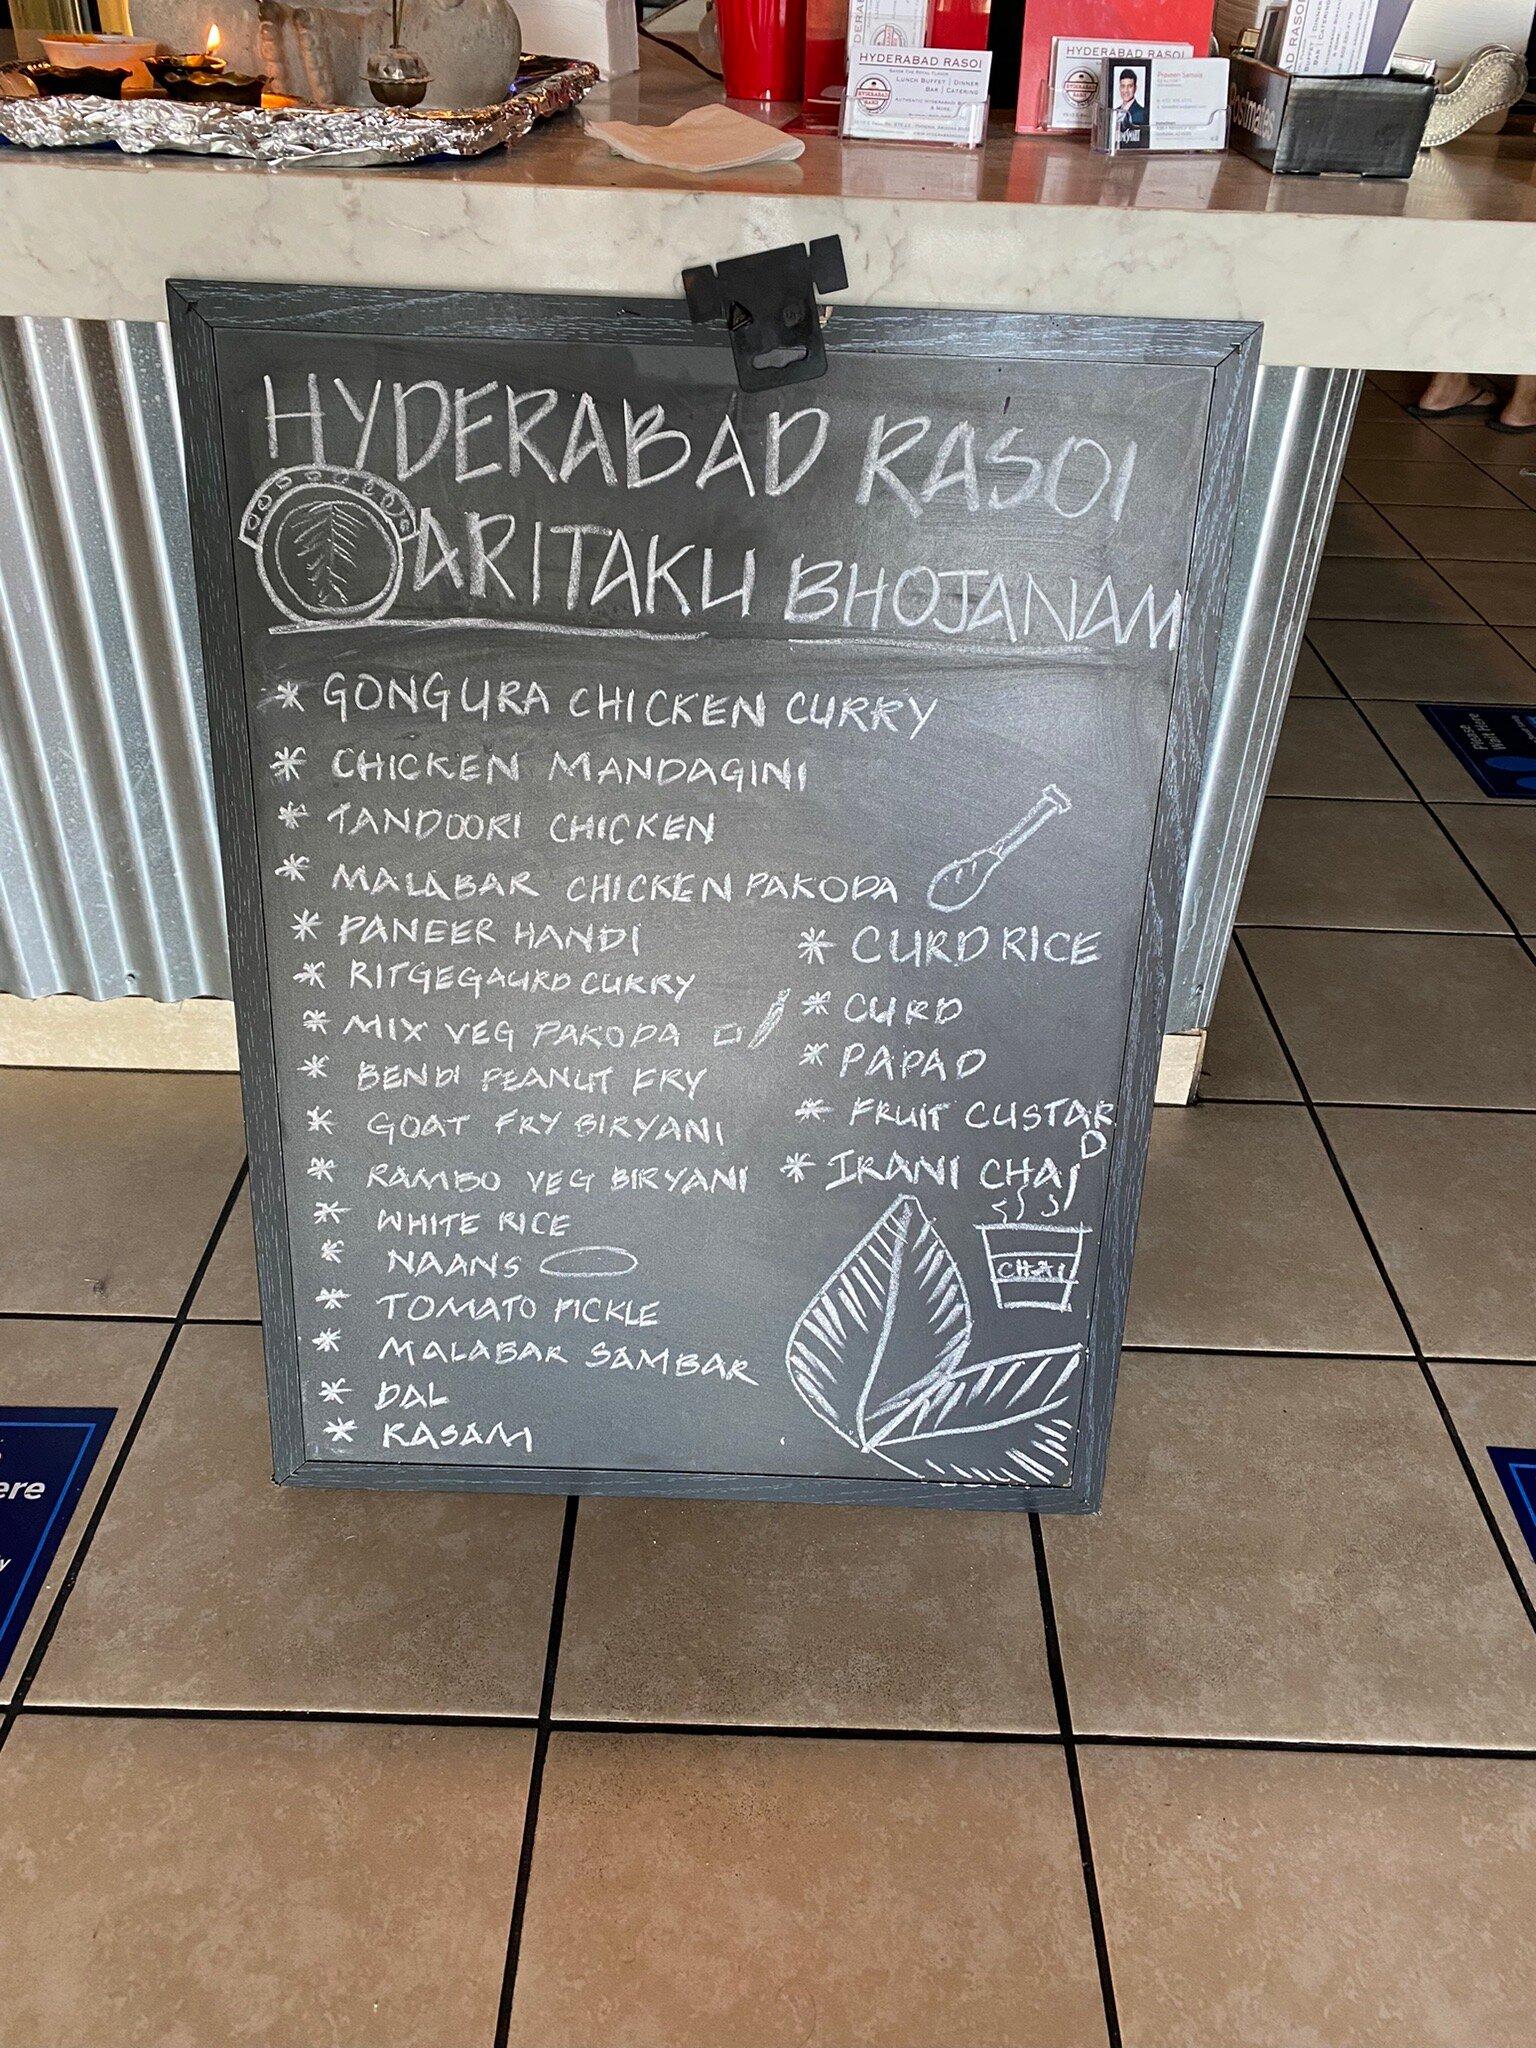 HYDERABAD RASOI
LUNCH BUFFET | DINNER
BAR | CATERING
HYDERABAD RASOI
Postmates
HYDERABAD RASOI
ARITAKU BHOJANAM
* GONGURA CHICKEN CURRY
* CHICKEN MANDAGINI
* TANDOORI CHICKEN
* MALABAR CHICKEN PAKODA
* PANEER HANDI
* RITGEGAURD CURRY
* MIX VEG PAKODA
* BENDI PEANUT FRY
* GOAT FRY BIRYANI
* RAMBO VEG BIRYANI
* WHITE RICE
* NAANS
* TOMATO PICKLE
* MALABAR SAMBAR
* DAL
* RASAM
* CURD RICE
* CURD
* PAPAD
* FRUIT CUSTAR
D
* IRANI CHAI
CHAI
Please
Wait Here
ere